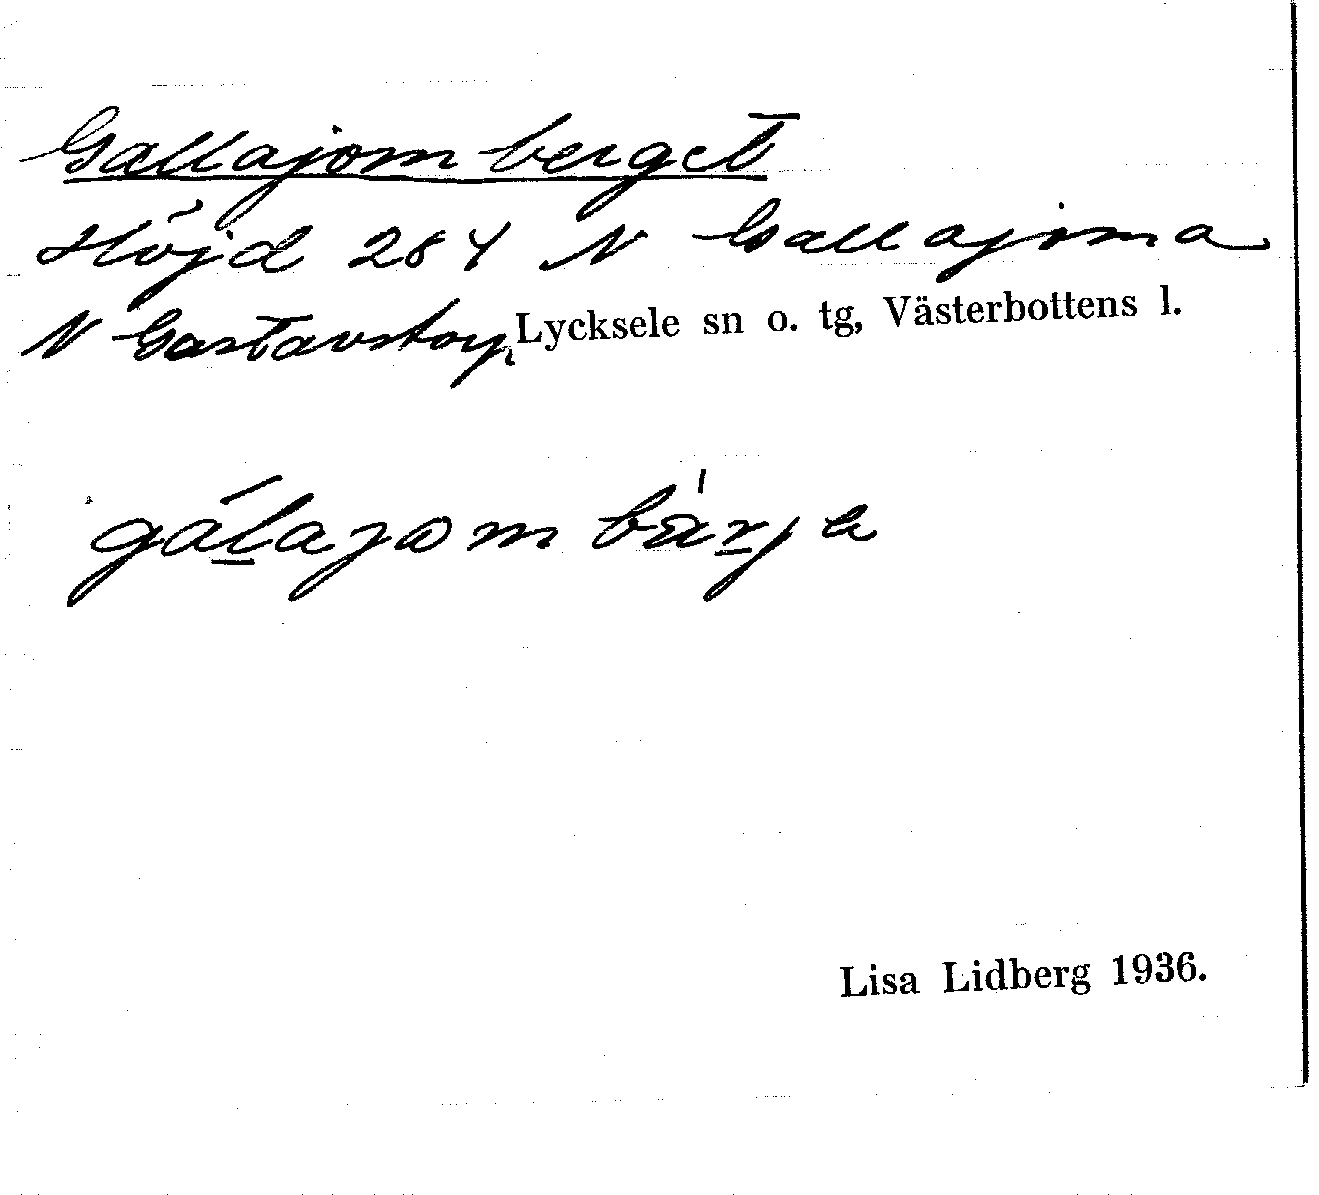 Gallajomberget
Höjd 284 N Gallajoma
N Gustavstorp, Lycksele sn o. tg, Västerbottens l.
gálajom bärje
Lisa Lidberg 1936.